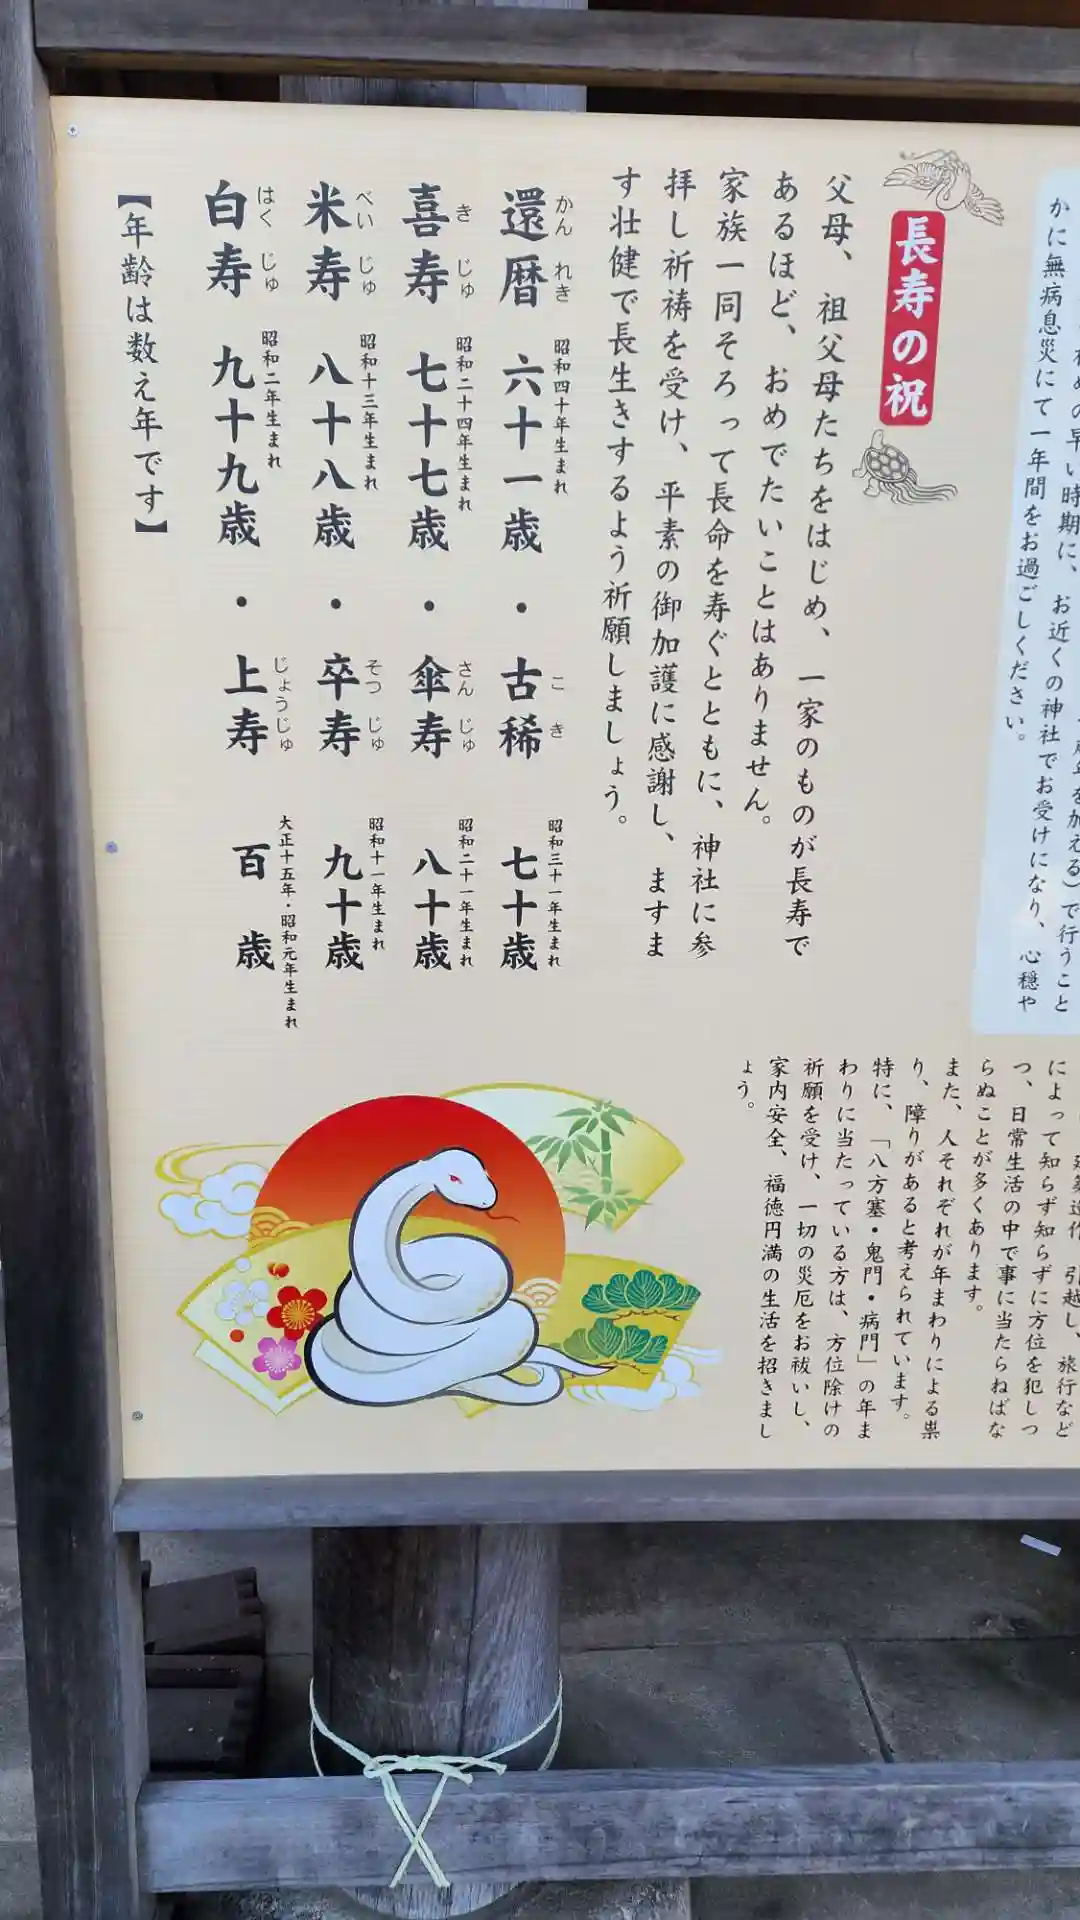 め の早い時期に、お近くの神社でお受けになり、心穏や
かに無病息災にて一年間をお過ごしください。
を加える)で行うこと
長寿の祝
父母、祖父母たちをはじめ、一家のものが長寿で
あるほど、おめでたいことはありません。
家族一同そろって長命を寿ぐとともに、神社に参
拝し祈祷を受け、平素の御加護に感謝し、ますま
す壮健で長生きするよう祈願しましょう。
還暦 かんれき 六十一歳 昭和四十年生まれ ・ 古稀 こき 七十歳 昭和三十一年生まれ
喜寿 きじゅ 七十七歳 昭和二十四年生まれ ・ 傘寿 さんじゅ 八十歳 昭和二十一年生まれ
米寿 べいじゅ 八十八歳 昭和十三年生まれ ・ 卒寿 そつじゅ 九十歳 昭和十一年生まれ
白寿 はくじゅ 九十九歳 昭和二年生まれ ・ 上寿 じょうじゅ 百歳 大正十五年・昭和元年生まれ
【年齢は数え年です】
引越し、旅行など
によって知らず知らずに方位を犯しつ
つ、日常生活の中で事に当たらねばな
らぬことが多くあります。
また、人それぞれが年まわりによる祟
り、障りがあると考えられています。
特に、「八方塞・鬼門・病門」の年ま
わりに当たっている方は、方位除けの
祈願を受け、一切の災厄をお祓いし、
家内安全、福徳円満の生活を招きまし
ょう。